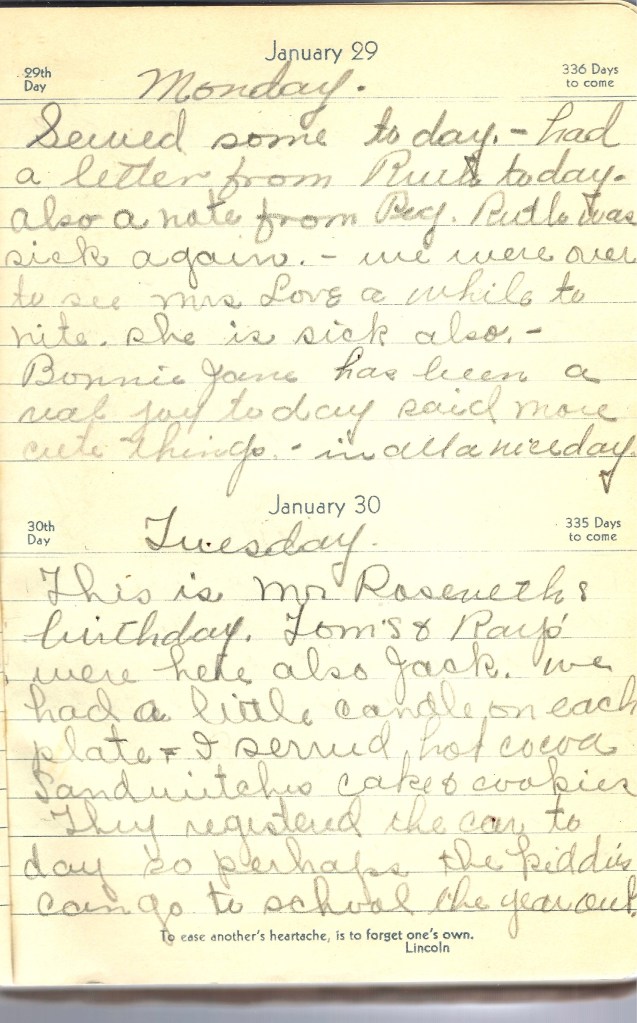 January 29
29th
Day
336 Days
to come
Monday.
Sewed some to day. - had
a letter from Ruth today.
also a note from Peg. Ruth was
sick again. - we were over
to see mrs Love a while to
nite. she is sick also. -
Bonnie Jane has been a
real joy to day said more
cute things. - in all a nice day.
January 30
30th
Day
335 Days
to come
Tuesday.
This is Mr Roseneths
birthday. Tom's & Ray's
were here also Jack. we
had a little candle on each
plate - I served hot cocoa
Sandwitches cake & cookies
They registered the car to
day so perhaps the kiddies
can go to school the year out.
To ease another's heartache, is to forget one's own.
Lincoln